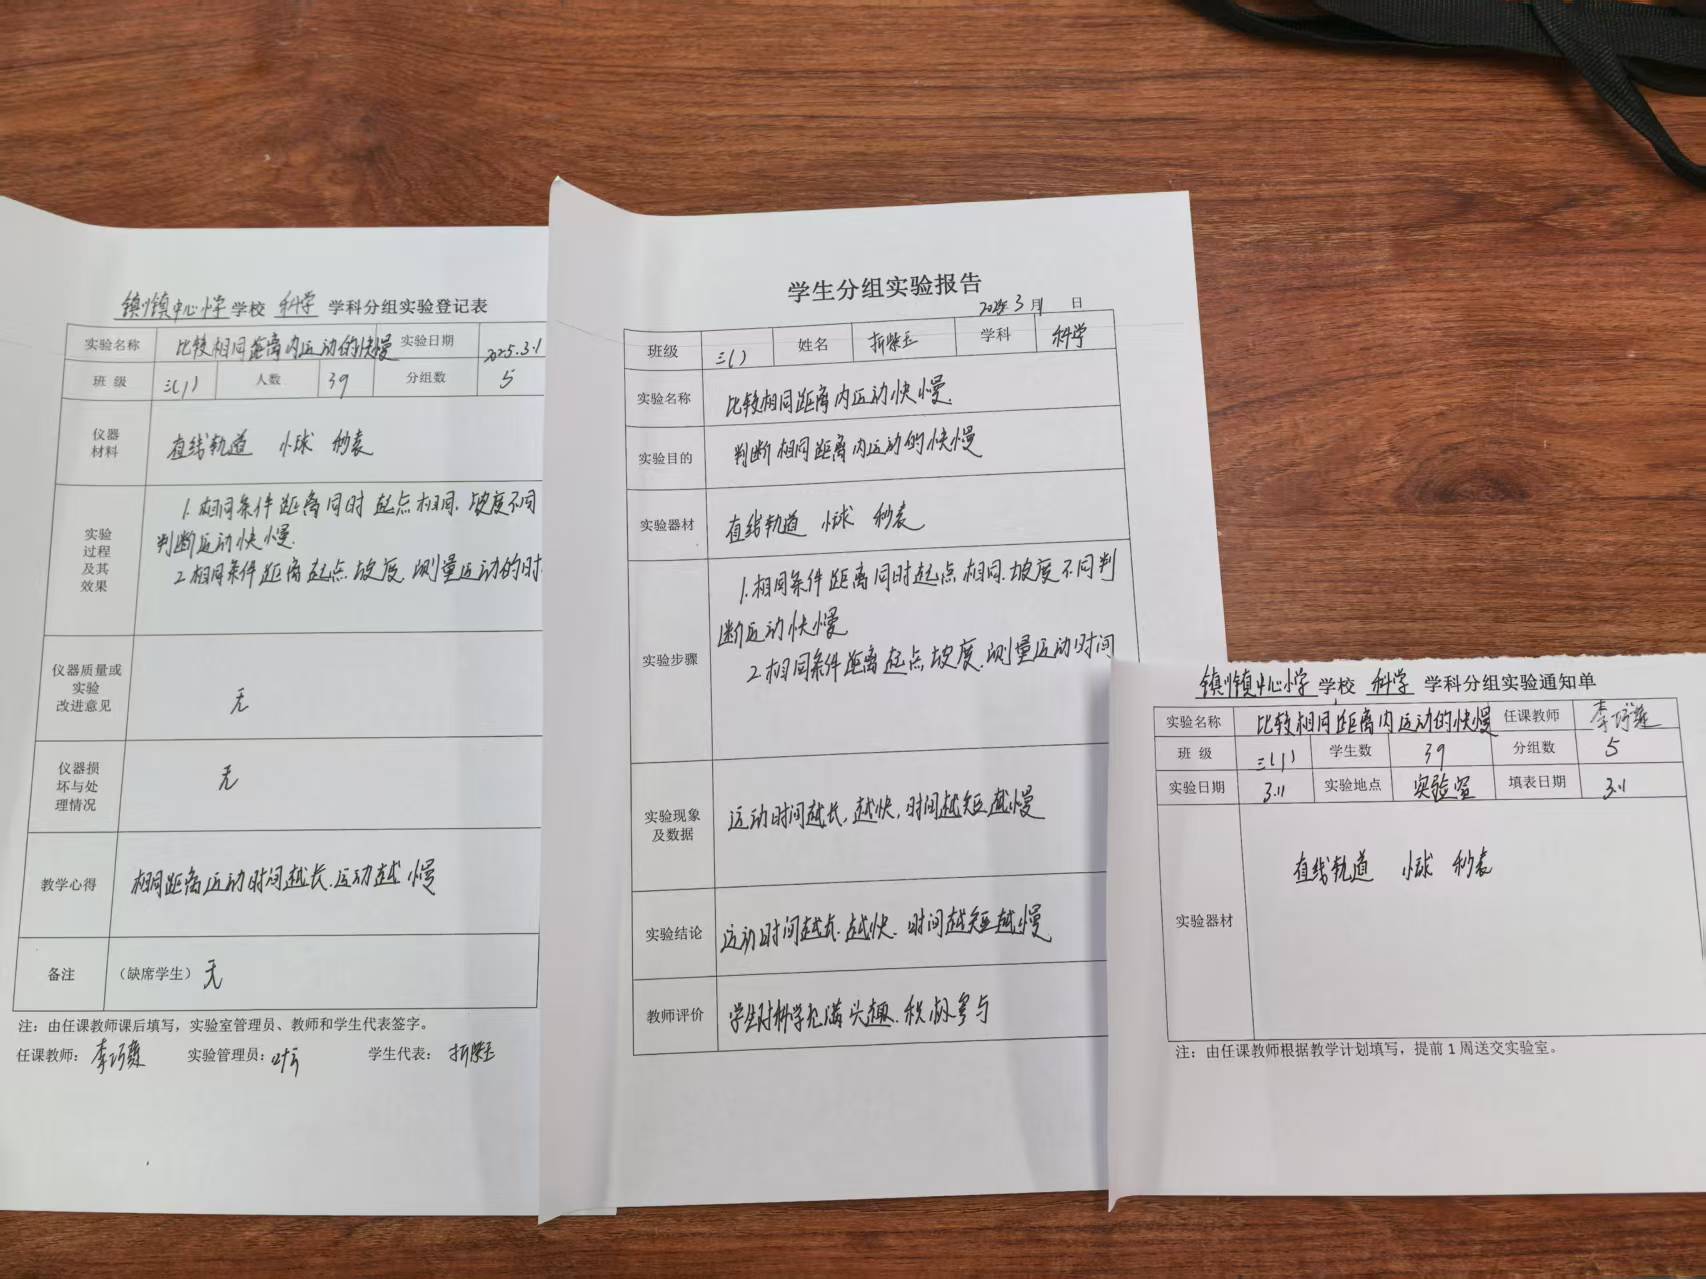 镇川镇中心小学 学校 科学 学科分组实验登记表
实验名称 比较相同距离内运动的快慢 实验日期 2025.3.1
班 级 三(1) 人数 39 分组数 5
仪器
材料
直线轨道 小球 秒表
实验
过程
及其
效果
1.相同条件 距离 同时 起点相同.坡度不同
判断运动快慢.
2.相同条件 距离 起点.坡度.测量运动的时
仪器质量或
实验
改进意见
无
仪器损
坏与处
理情况
无
教学心得 相同距离运动时间越长.运动越慢
备注 (缺席学生) 无
注：由任课教师课后填写，实验室管理员、教师和学生代表签字。
任课教师： 实验管理员： 学生代表：
学生分组实验报告
2025年3月11日
班级 三(1) 姓名 学科 科学
实验名称 比较相同距离内运动快慢.
实验目的 判断相同距离内运动的快慢
实验器材 直线轨道 小球 秒表
实验步骤
1.相同条件 距离 同时 起点相同.坡度不同判
断运动快慢
2.相同条件 距离 起点 坡度.测量运动时间
实验现象
及数据
运动时间越长,越快,时间越短越慢
实验结论 运动时间越长.越快.时间越短越慢
教师评价 学生对科学充满兴趣.积极参与
镇川镇中心小学 学校 科学 学科分组实验通知单
实验名称 比较相同距离内运动的快慢 任课教师
班 级 三(1) 学生数 39 分组数 5
实验日期 3.11 实验地点 实验室 填表日期 3.1
实验器材
直线轨道 小球 秒表
注：由任课教师根据教学计划填写，提前1周送交实验室。